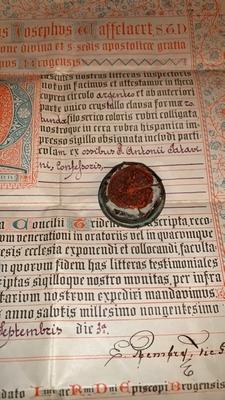 us Josephus Waffelaert S.T.D.
one divina et S. Sedis apostolicæ gratia
us Brugensis
nostras litteras inspecturis
notum facimus et attestamur in theca
cuprea circulo argenteo et ab anteriori
parte unico crystallo clausa formæ ro
tunda filo serico coloris rubri colligata
nostroque in cera rubra hispanica im
presso sigillo obsignata includi parti
culam ex ossibus S. Antonii Patavi
ni, Confessoris,
a Concilii Tridentini præscripta, reco
rum venerationi in oratoriis vel in quacunque
esis ecclesia exponendi et collocandi faculta
n quorum fidem has litteras testimoniales
riptas sigilloque nostro munitas, per infra
tarium nostrum expediri mandavimus
s anno salutis millesimo nongentesimo
Septembris die
dato Ill.mi ac R.mi D.ni Episcopi Brugensis